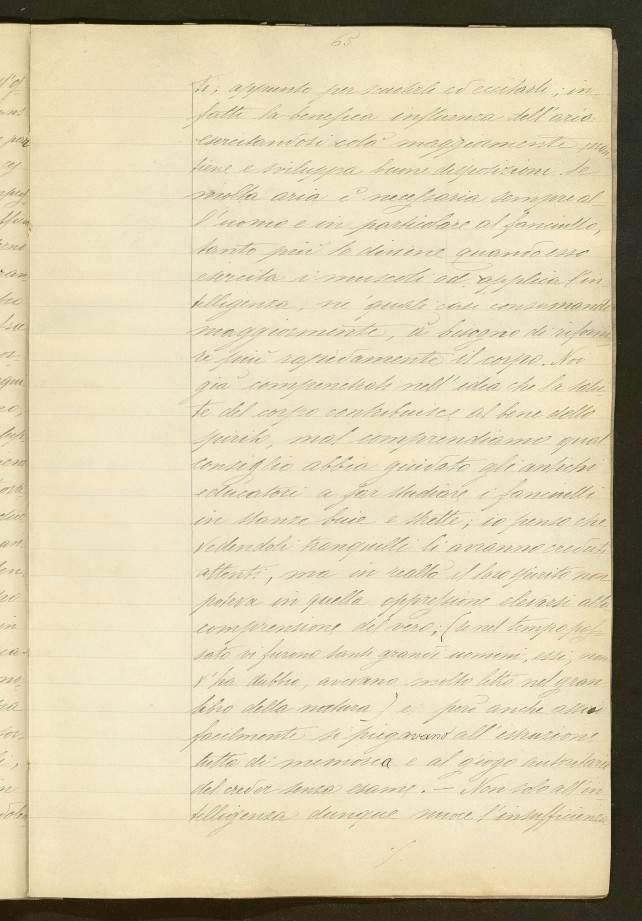 65
ti, appunto per scuoterli ed eccitarli; in-
fatti la benefica influenza dell'aria
esercitandosi colà maggiormente man
tiene e sviluppa buone disposizioni. Se
molta aria è necessaria sempre al
l'uomo e in particolare al fanciullo,
tanto più lo diviene quando esso
esercita i muscoli od applica l'in-
telligenza, ne' quali casi consumando
maggiormente, à bisogno di riforni
re più rapidamente il corpo. Noi
già compenetrati nell'idea che la salu-
te del corpo contribuisce al bene dello
spirito, mal comprendiamo qual
consiglio abbia guidato gli antichi
educatori a far studiare i fanciulli
in stanze buie e strette; io penso che
vedendoli tranquilli li avranno creduti
attenti, ma in realtà il loro spirito non
poteva in quella oppressione elevarsi alla
comprensione del vero; (se nel tempo pas-
sato vi furono tanti grandi uomini, essi, non
v'ha dubbio, avevano molto letto nel gran
libro della natura) e però anche assai
facilmente si piegavano all'istruzione
tutta di memoria e al giogo autoritario
del creder senza esame. — Non solo all'in-
telligenza dunque nuoce l'insufficienza